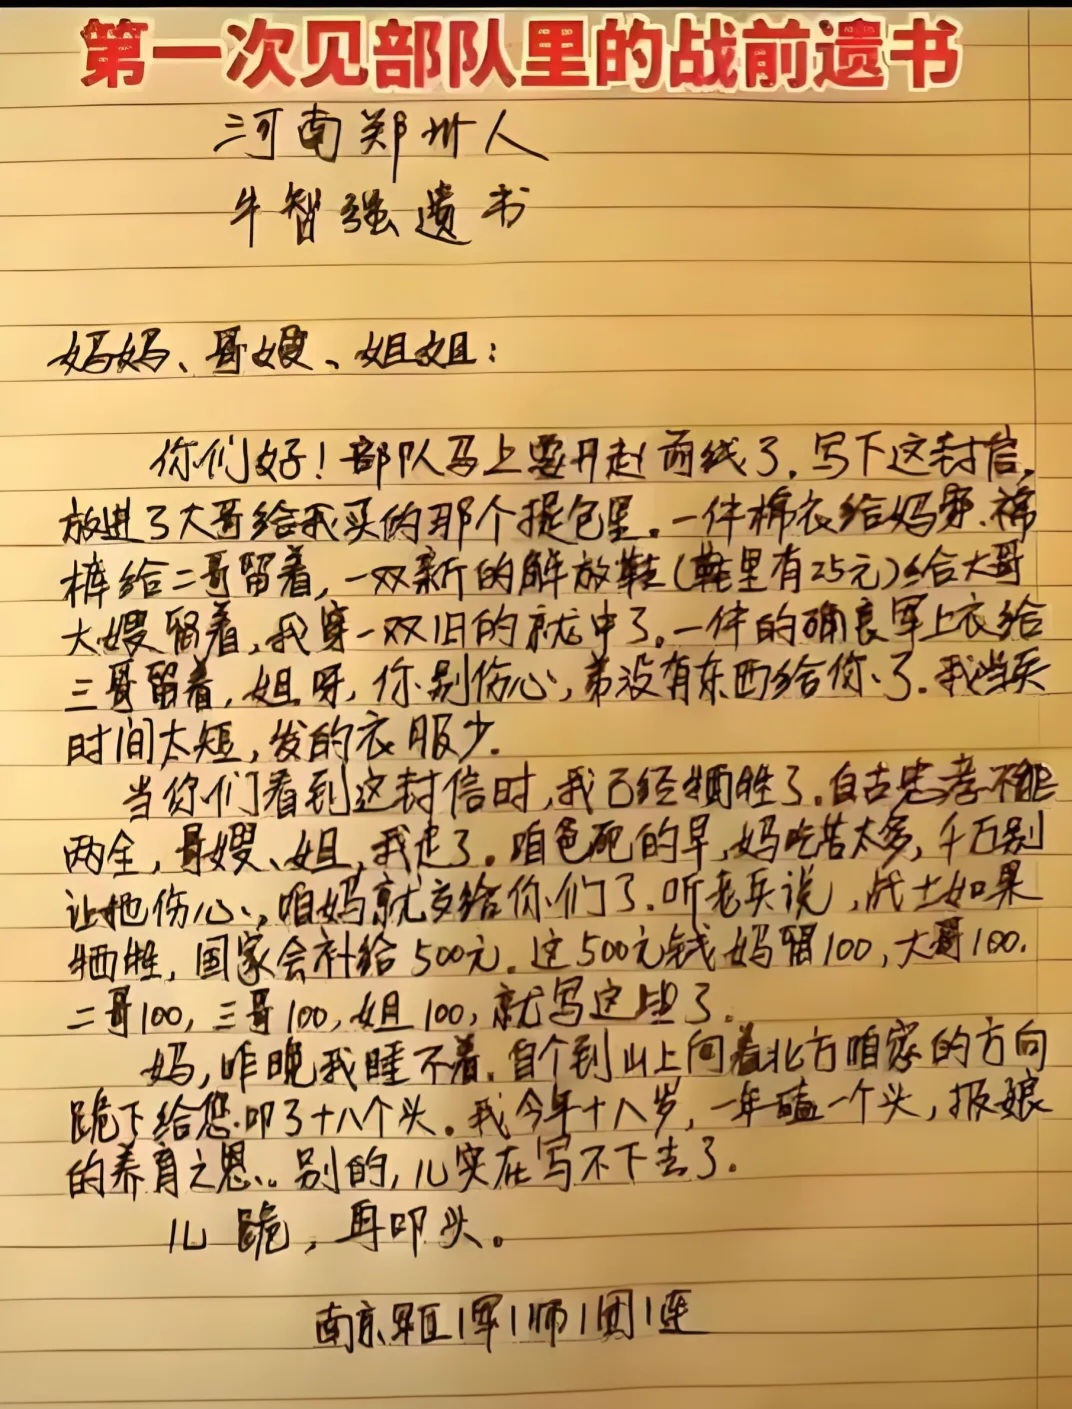 第一次见部队里的战前遗书
河南郑州人
牛智强遗书
妈妈、哥嫂、姐姐：
你们好！部队马上要开赴前线了．写下这封信，
放进了大哥给我买的那个提包里．一件棉衣给妈穿．棉
裤给二哥留着，一双新的解放鞋（鞋里有25元）给大哥
大嫂留着，我穿一双旧的就中了．一件的确良军上衣给
三哥留着，姐呀，你别伤心，弟没有东西给你了．我当兵
时间太短，发的衣服少．
当你们看到这封信时，我已经牺牲了．自古忠孝不能
两全，哥嫂、姐，我走了．咱爸死的早，妈吃苦太多，千万别
让她伤心，咱妈就交给你们了．听老兵说，战士如果
牺牲，国家会补给500元．这500元钱妈留100，大哥100．
二哥100，三哥100，姐100，就写这些了．
妈，昨晚我睡不着．自个到山上向着北方咱家的方向
跪下给您叩了十八个头。我今年十八岁，一年磕一个头，报娘
的养育之恩．．别的，儿实在写不下去了．
儿跪，再叩头。
南京军区1军1师1团1连